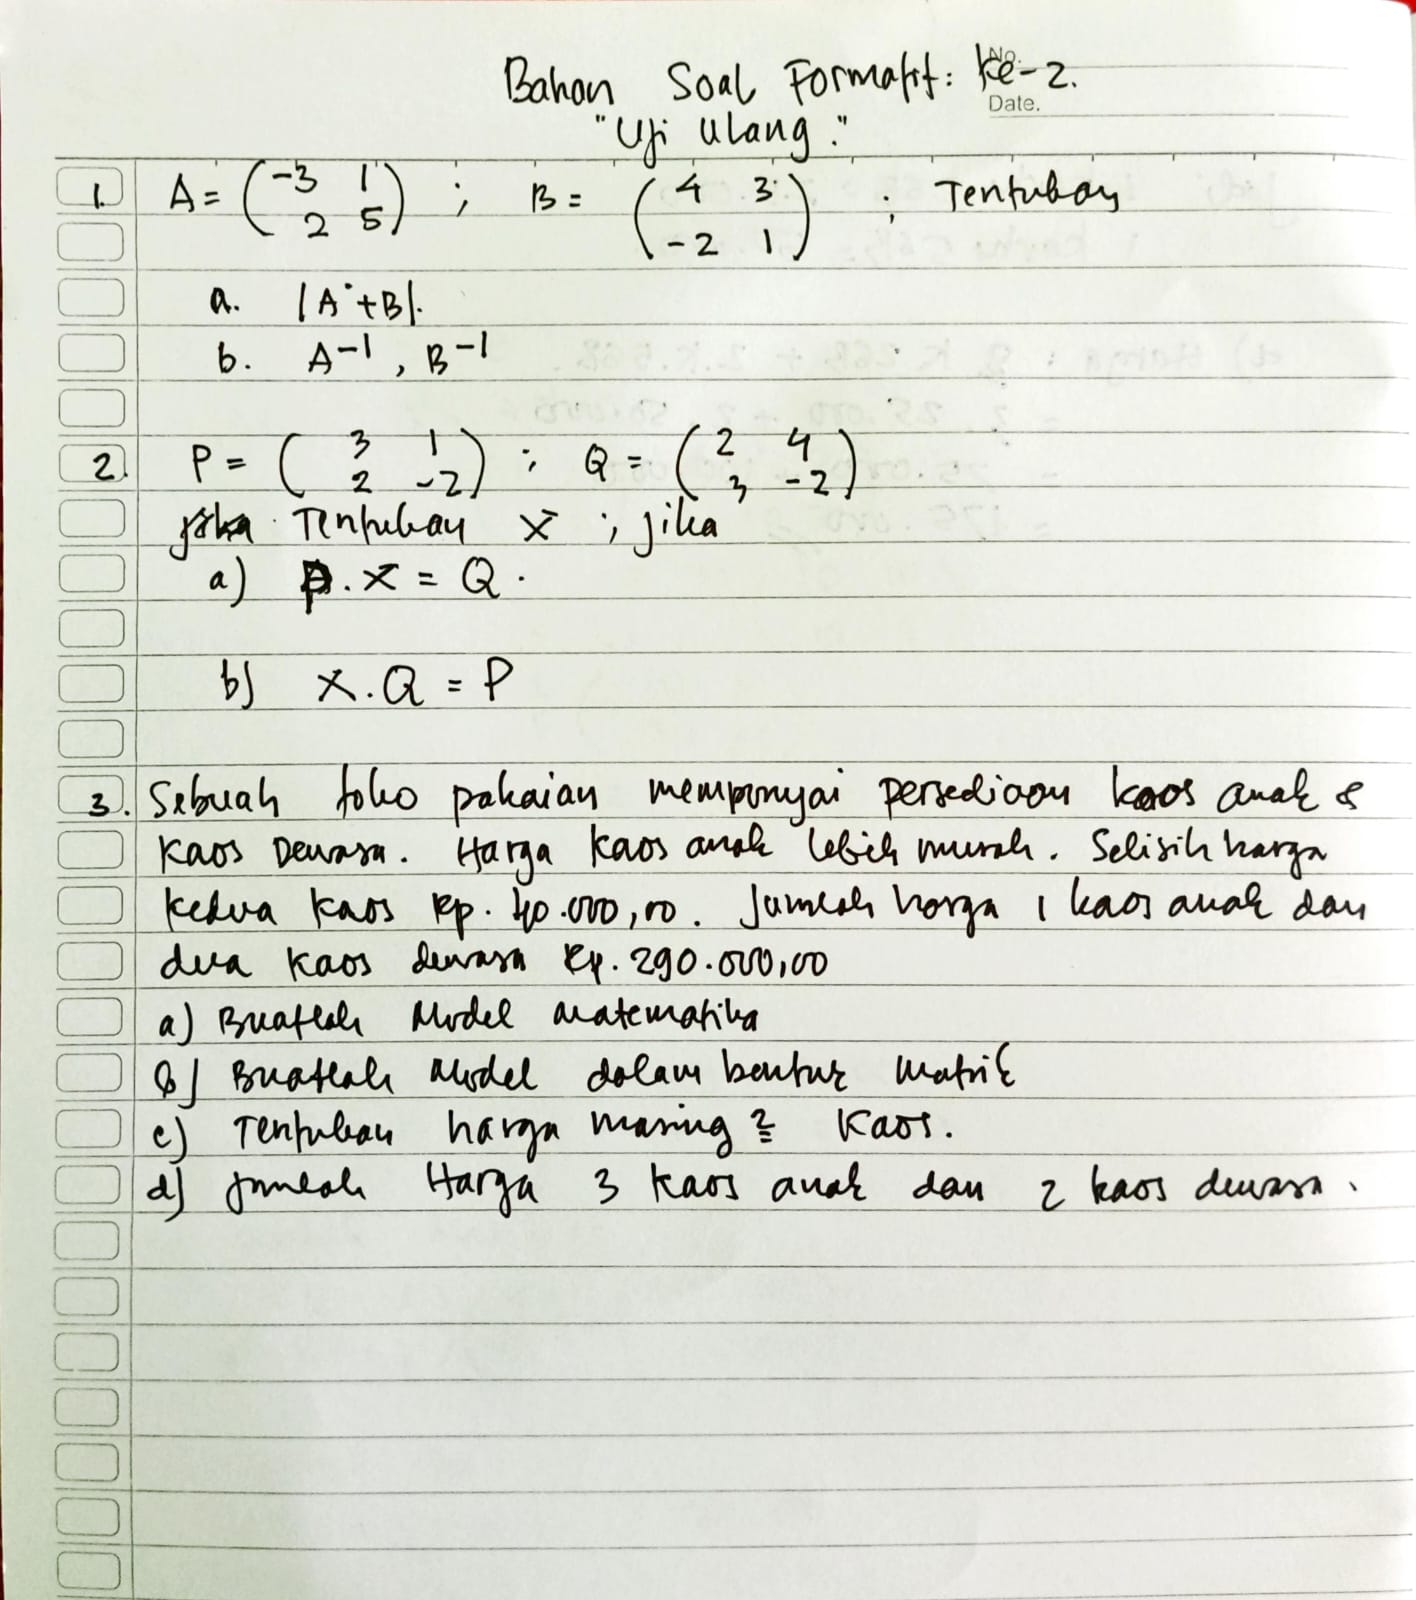 Bahan Soal Formatif: Ke-2.
No.
Date.
"Uji Ulang."
1. A = (-3 1 ; B = (4 3 ; Tentukan
2 5) -2 1)
a. |A + B|.
b. A-1, B-1
2. P = (3 1 ; Q = (2 4
2 -2) 3 -2)
jika Tentukan X ; jika
a) P.X = Q.
b) X.Q = P
3. Sebuah toko pakaian mempunyai persediaan kaos anak &
kaos Dewasa. Harga kaos anak lebih murah. Selisih harga
kedua kaos Rp. 40.000,00. Jumlah harga 1 kaos anak dan
dua kaos dewasa Rp. 290.000,00
a) Buatlah Model matematika
b) Buatlah Model dalam bentuk Matrik
c) Tentukan harga masing2 Kaos.
d) Jumlah Harga 3 kaos anak dan 2 kaos dewasa.